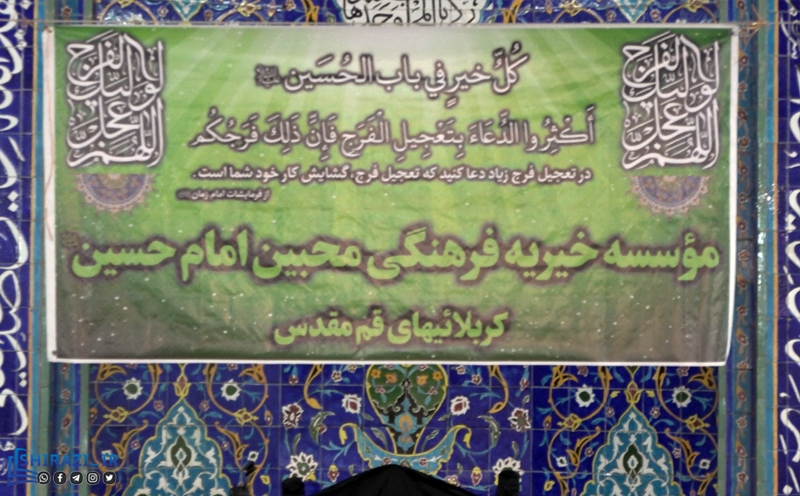 كُلُّ خيرٍ في باب الحُسَين
أَكْثِرُوا الدُّعَاءَ بِتَعْجِيلِ الْفَرَجِ فَإِنَّ ذَلِكَ فَرَجُكُم
در تعجیل فرج زیاد دعا کنید که تعجیل فرج، گشایش کار خود شما است.
از فرمایشات امام زمان
مؤسسه خیریه فرهنگی محبین امام حسین
کربلائیهای قم مقدس
اللهم عجل لوليك الفرج
اللهم عجل لوليك الفرج
SHIRAZI_IR